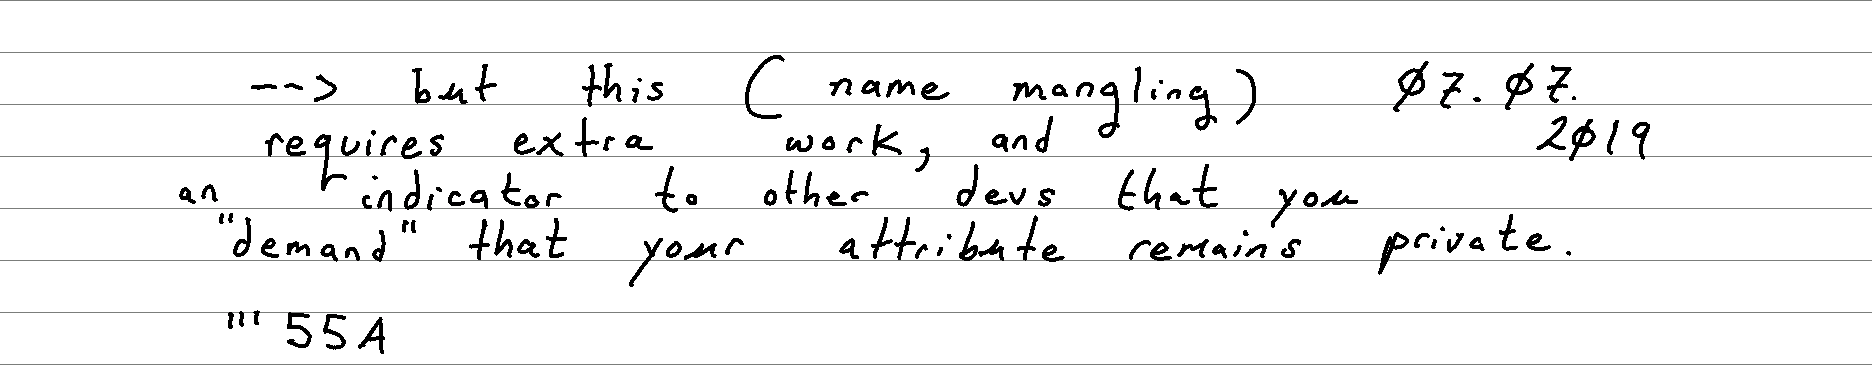 --> but this (name mangling) Ø7.Ø7.
requires extra work, and 2Ø19
an indicator to other devs that you
"demand" that your attribute remains private.
''' 55A